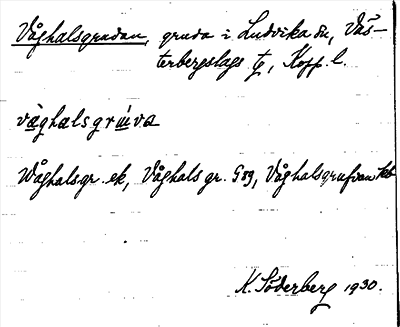 Våghalsgruvan, gruva i Ludvika sn, Väs-
terbergslags tg, Kopp. l.
våghalsgruva
Wåghalsgr. ek, Våghals gr. G 89, Våghalsgrufvan
K. Söderberg 1930.